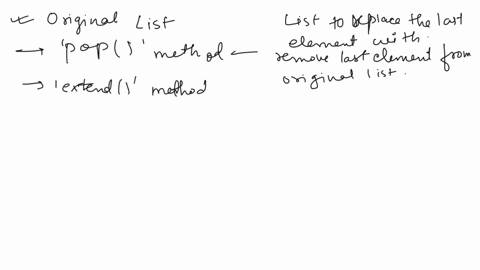 * Original List
→ 'pop()' method ←
→ 'extend()' method
List to replace the last
element with.
remove last element from
original list.